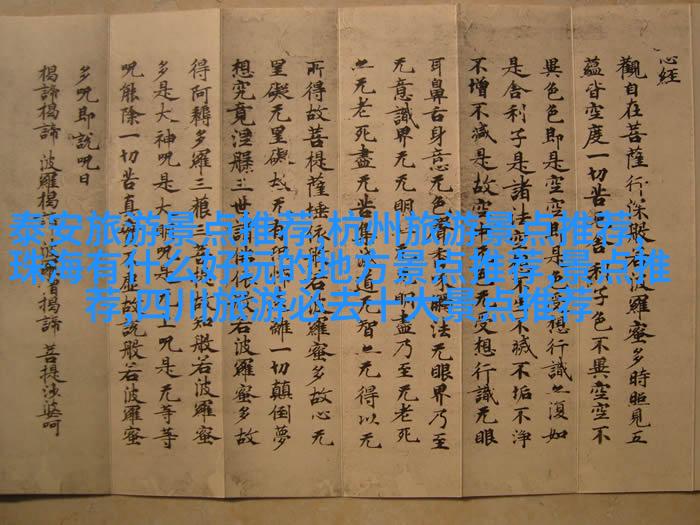 心经
觀自在菩薩行深般若波羅蜜多時照見五
蘊皆空度一切苦厄舍利子色不異空空不
異色色即是空空即是色受想行識亦復如
是舍利子是諸法空相不生不滅不垢不淨
不增不減是故空中无色无受想行識无眼
耳鼻舌身意无色聲香味觸法无眼界乃至
无意識界无无明亦无无明盡乃至无老死
亦无老死盡无苦集滅道无智亦无得以无
所得故菩提薩埵依般若波羅蜜多故心无
罣礙无罣礙故无有恐怖遠離一切顛倒夢
想究竟涅槃三世諸佛依般若波羅蜜多故
得阿耨多羅三藐三菩提故知般若波羅蜜
多是大神呪是大明呪是无上呪是无等等
呪能除一切苦真實不虛故說般若波羅蜜
多呪即說呪曰
揭諦揭諦 波羅揭諦 波羅僧揭諦 菩提娑婆呵
泰安旅游景点推荐,杭州旅游景点推荐,
珠海有什么好玩的地方景点推荐,景点推
荐,四川旅游必去十大景点推荐